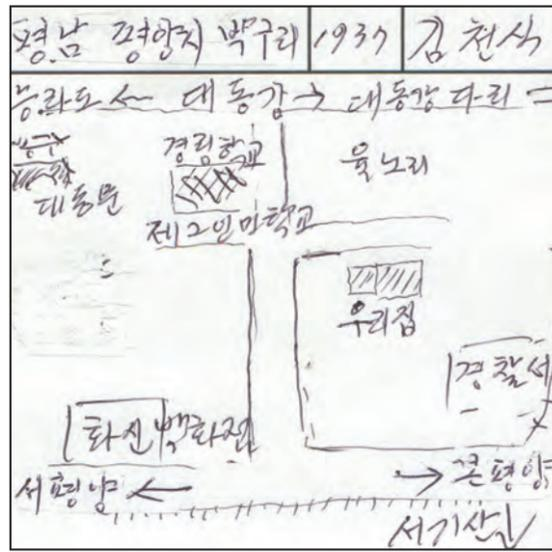 평남 평양시 박구리 1937 김천식
능라도 ← 대동강 → 대동강 다리
경림학교
육노리
대동문
제2인민학교
우리집
경찰서
화신백화점
서평양 ←
→ 큰평양
서기산길